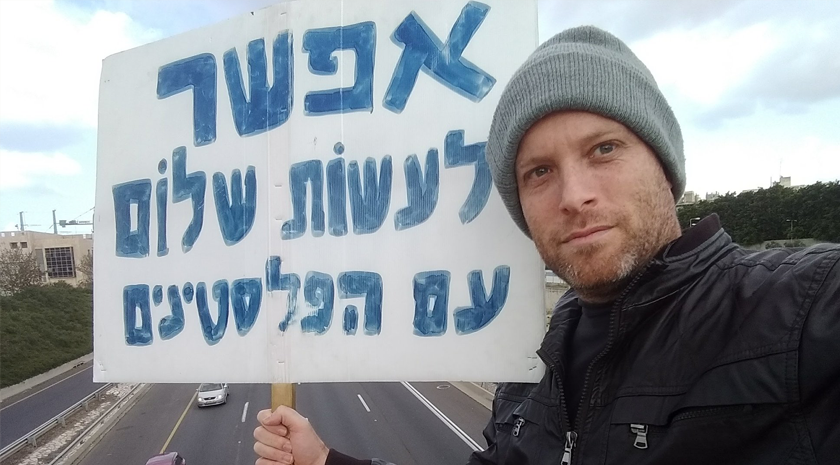 אפשר
לעשות שלום
עם הפלסטינים